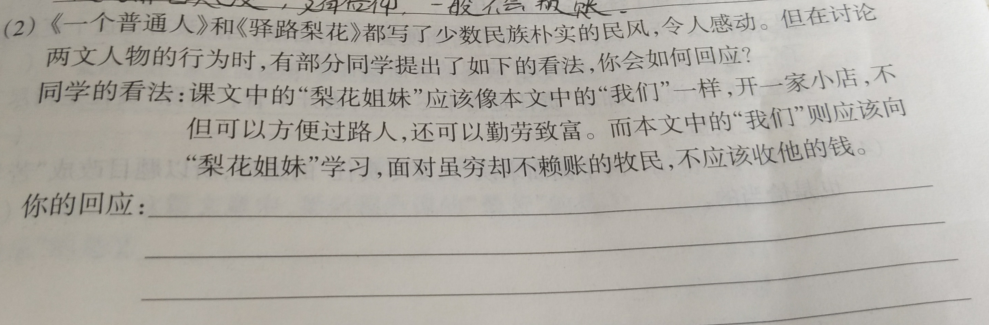 一般不会赖账。
(2)《一个普通人》和《驿路梨花》都写了少数民族朴实的民风,令人感动。但在讨论
两文人物的行为时,有部分同学提出了如下的看法,你会如何回应?
同学的看法:课文中的“梨花姐妹”应该像本文中的“我们”一样,开一家小店,不
但可以方便过路人,还可以勤劳致富。而本文中的“我们”则应该向
“梨花姐妹”学习,面对虽穷却不赖账的牧民,不应该收他的钱。
你的回应: